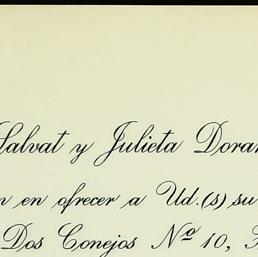 Salvat y Julieta Doran
en ofrecer a Ud.(s) su
Dos Conejos Nº 10,